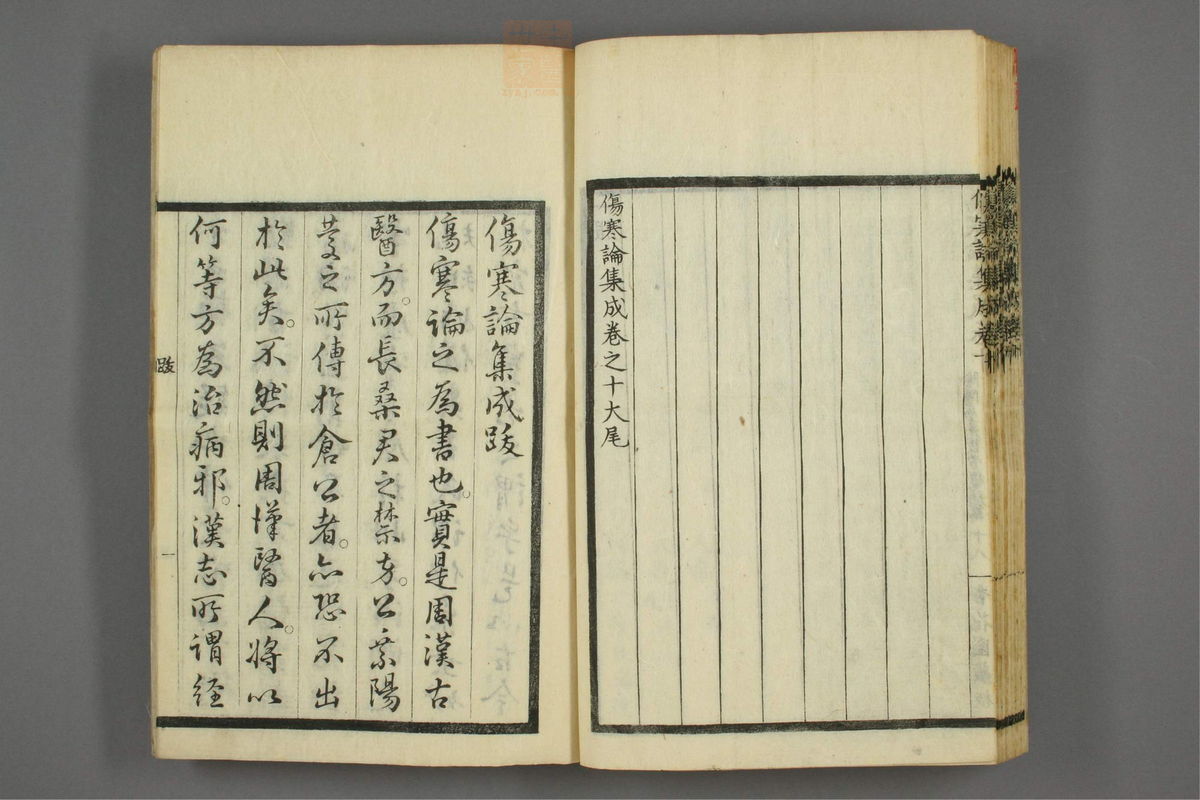 傷寒論集成卷十
傷寒論集成卷之十大尾
傷寒論集成跋
傷寒論之為書也。實是周漢古
醫方。而長桑君之禁方。公乘陽
慶之所傳於倉公者。亦恐不出
於此矣。不然則周漢醫人。將以
何等方為治病邪。漢志所謂經
跋
一